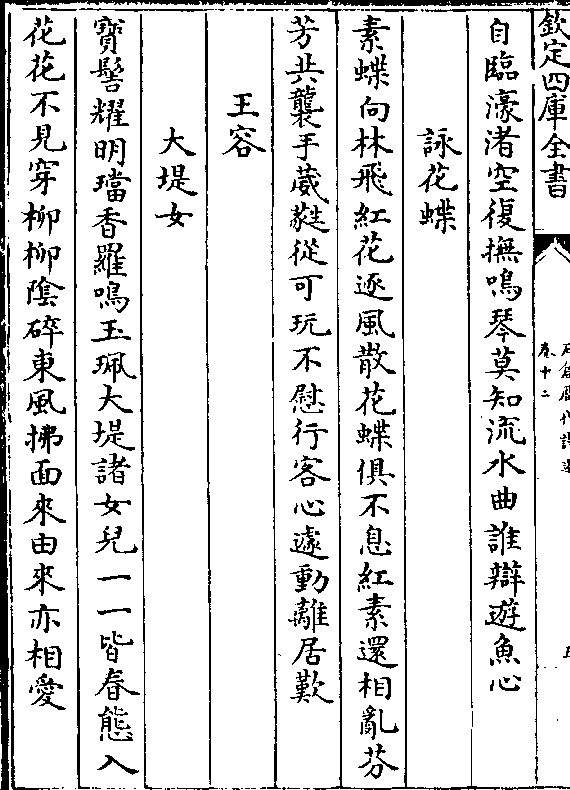 欽定四庫全書
卷十二
五
自臨濠渚空復撫鳴琴莫知流水曲誰辯遊魚心
詠花蝶
素蝶向林飛紅花逐風散花蝶俱不息紅素還相亂芬
芳共襲手葳蕤從可玩不慰行客心遽動離居歎
王容
大堤女
寶髻耀明璫香羅鳴玉珮大堤諸女兒一一皆春態入
花花不見穿柳柳陰碎東風拂面來由來亦相愛